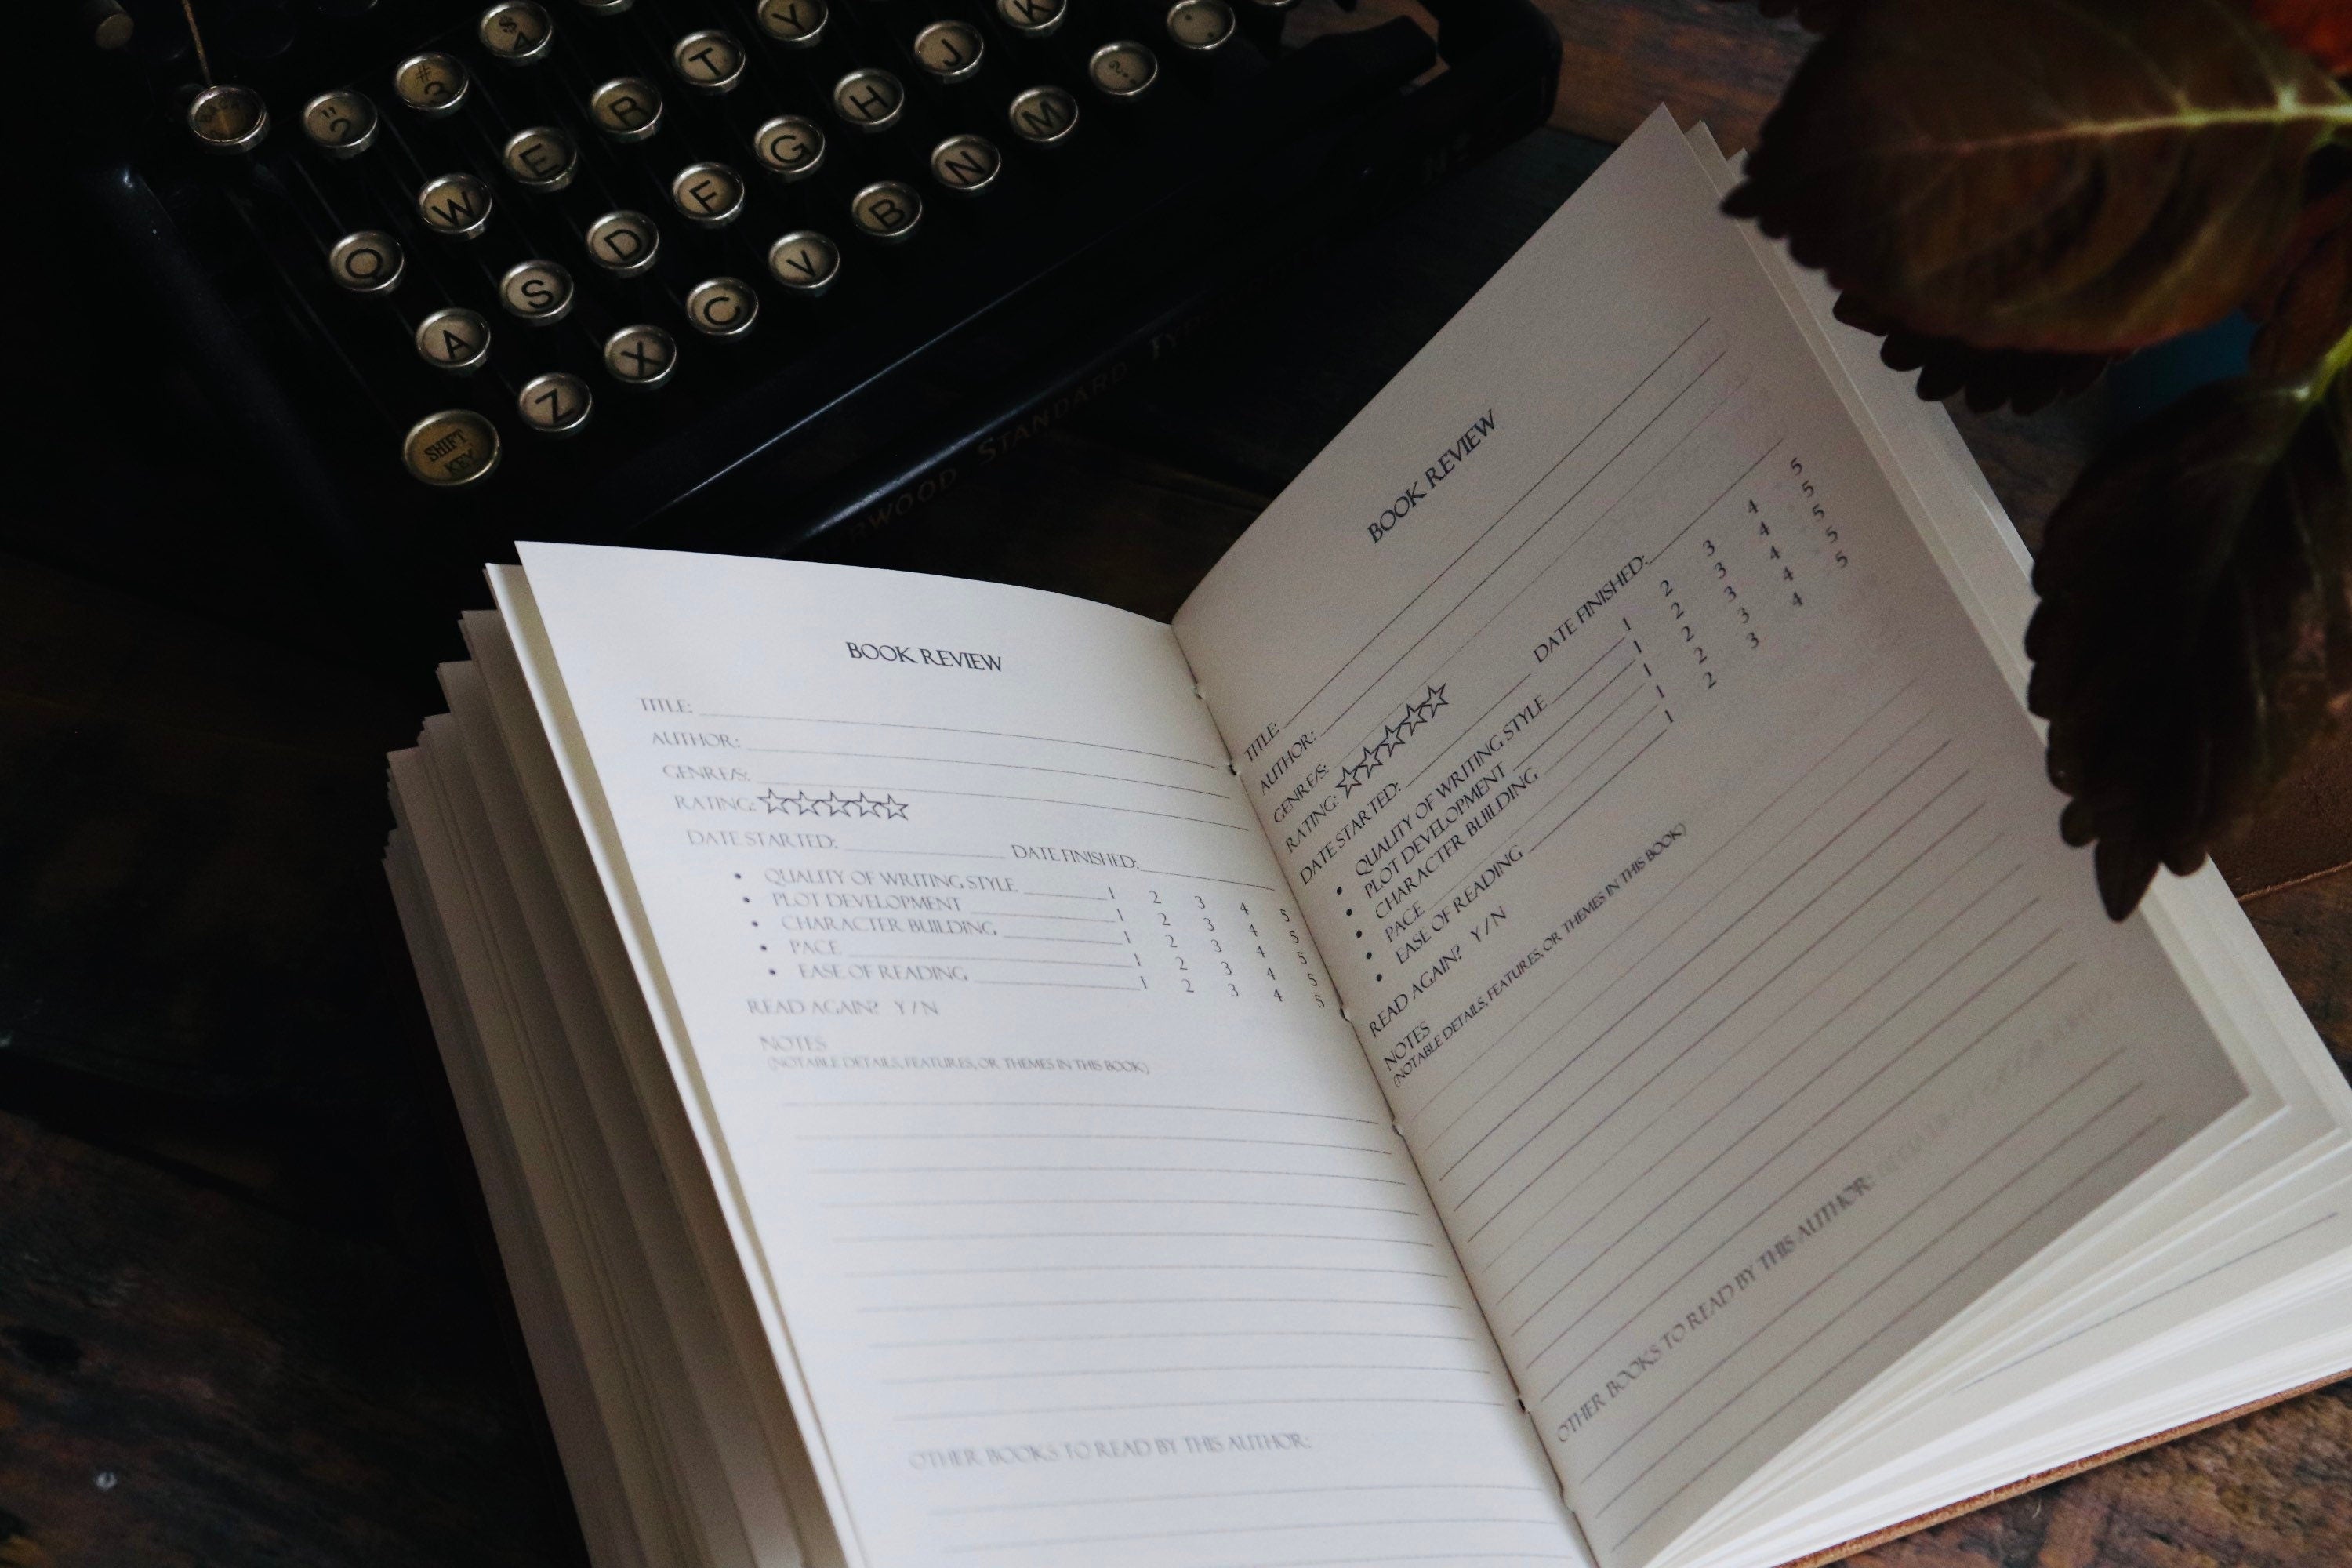 BACK
" 2
# 3
$ 4
Q W E R T Y
A S D F G H J K
SHIFT KEY
Z X C V B N M
STANDARD
BOOK REVIEW
TITLE:
AUTHOR:
GENRE/S:
RATING: ☆☆☆☆☆
DATE STARTED: DATE FINISHED:
• QUALITY OF WRITING STYLE 1 2 3 4 5
• PLOT DEVELOPMENT 1 2 3 4 5
• CHARACTER BUILDING 1 2 3 4 5
• PACE 1 2 3 4 5
• EASE OF READING 1 2 3 4 5
READ AGAIN? Y / N
NOTES
(NOTABLE DETAILS, FEATURES, OR THEMES IN THIS BOOK)
OTHER BOOKS TO READ BY THIS AUTHOR:
BOOK REVIEW
TITLE:
AUTHOR:
GENRE/S:
RATING: ☆☆☆☆☆
DATE STARTED: DATE FINISHED:
• QUALITY OF WRITING STYLE 1 2 3 4 5
• PLOT DEVELOPMENT 1 2 3 4 5
• CHARACTER BUILDING 1 2 3 4 5
• PACE 1 2 3 4 5
• EASE OF READING 1 2 3 4 5
READ AGAIN? Y / N
NOTES
(NOTABLE DETAILS, FEATURES, OR THEMES IN THIS BOOK)
OTHER BOOKS TO READ BY THIS AUTHOR: